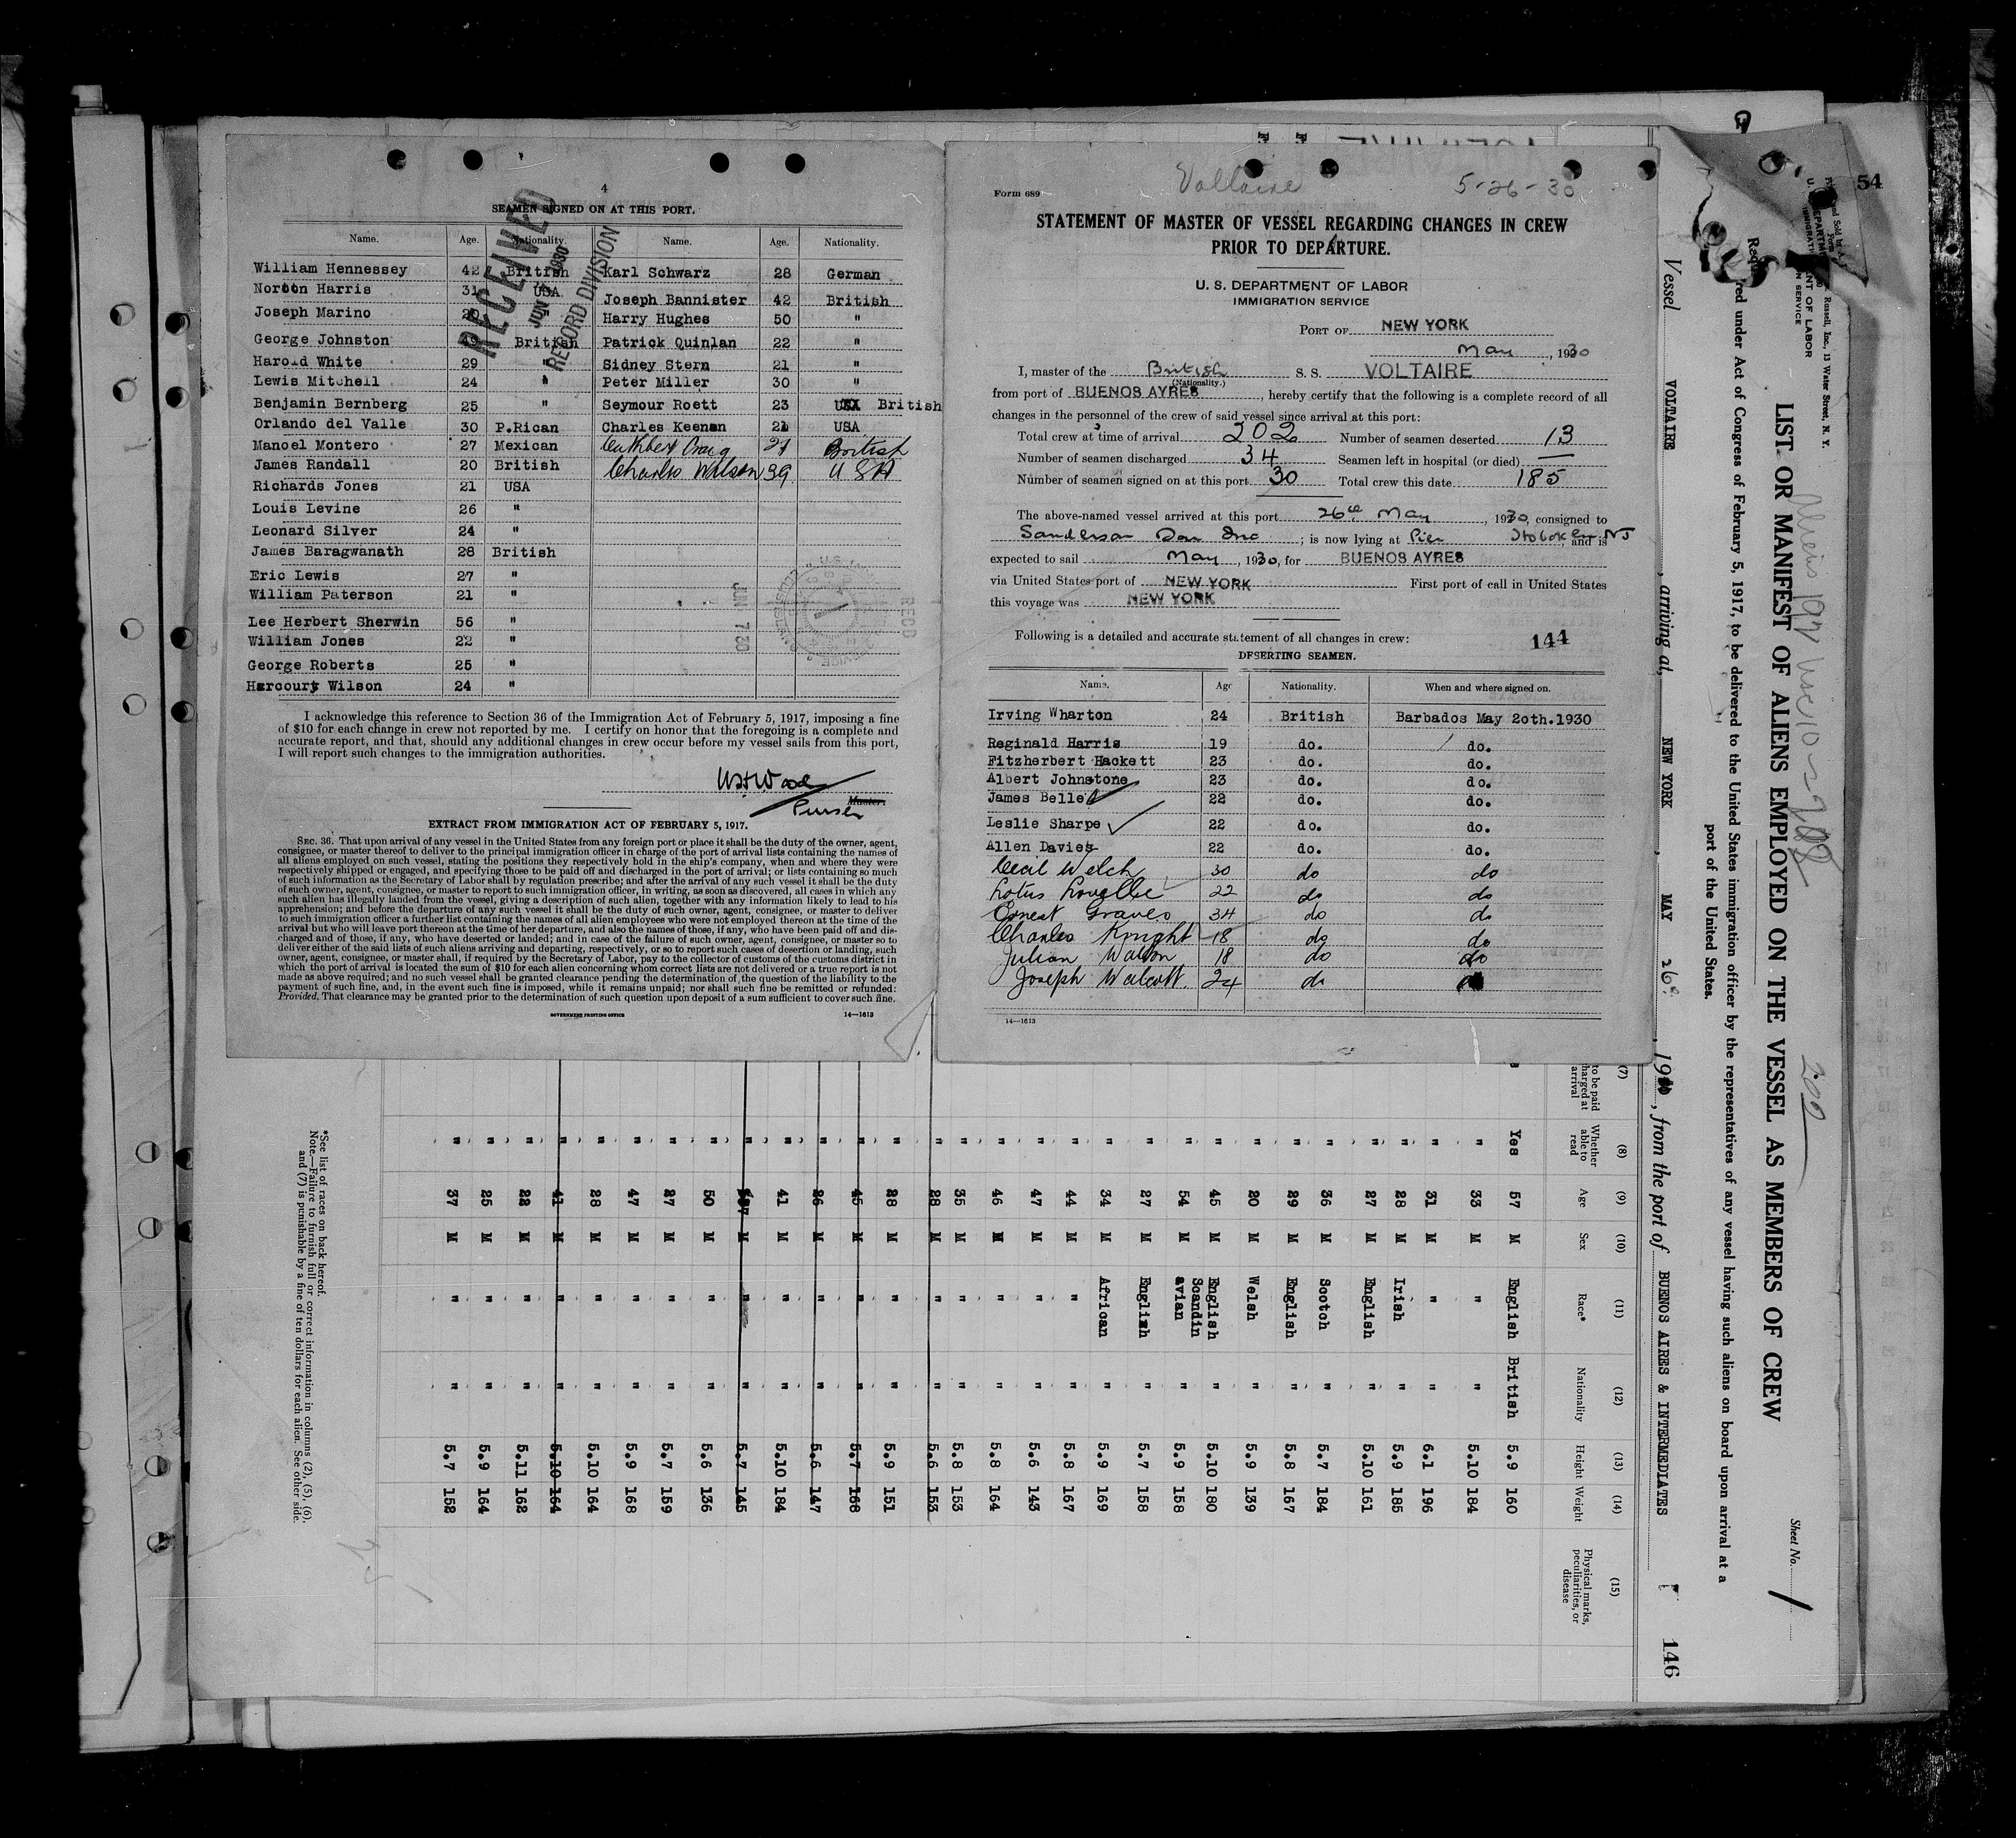 4
SEAMEN SIGNED ON AT THIS PORT.
Name. Age. Nationality. Name. Age. Nationality.
William Hennessey 42 British Karl Schwarz 28 German
Norton Harris 31 USA Joseph Bannister 42 British
Joseph Marino 20 " Harry Hughes 50 "
George Johnston 49 British Patrick Quinlan 22 "
Harold White 29 " Sidney Stern 21 "
Lewis Mitchell 24 " Peter Miller 30 "
Benjamin Bernberg 25 " Seymour Roett 23 USA British
Orlando del Valle 30 P.Rican Charles Keenan 21 USA
Manoel Montero 27 Mexican Cuthbert Craig 27 British
James Randall 20 British Charles Wilson 39 U S A
Richards Jones 21 USA
Louis Levine 26 "
Leonard Silver 24 "
James Baragwanath 28 British
Eric Lewis 27 "
William Paterson 21 "
Lee Herbert Sherwin 56 "
William Jones 22 "
George Roberts 25 "
Harcourt Wilson 24 "
RECEIVED
JUN 1930
RECORD DIVISION
JUN 7 30
REC'D
I acknowledge this reference to Section 36 of the Immigration Act of February 5, 1917, imposing a fine
of $10 for each change in crew not reported by me. I certify on honor that the foregoing is a complete and
accurate report, and that, should any additional changes in crew occur before my vessel sails from this port,
I will report such changes to the immigration authorities.
Master.
Purser
EXTRACT FROM IMMIGRATION ACT OF FEBRUARY 5, 1917.
SEC. 36. That upon arrival of any vessel in the United States from any foreign port or place it shall be the duty of the owner, agent,
consignee, or master thereof to deliver to the principal immigration officer in charge of the port of arrival lists containing the names of
all aliens employed on such vessel, stating the positions they respectively hold in the ship's company, when and where they were
respectively shipped or engaged, and specifying those to be paid off and discharged in the port of arrival; or lists containing so much
of such information as the Secretary of Labor shall by regulation prescribe; and after the arrival of any such vessel it shall be the duty
of such owner, agent, consignee, or master to report to such immigration officer, in writing, as soon as discovered, all cases in which any
such alien has illegally landed from the vessel, giving a description of such alien, together with any information likely to lead to his
apprehension; and before the departure of any such vessel it shall be the duty of such owner, agent, consignee, or master to deliver
to such immigration officer a further list containing the names of all alien employees who were not employed thereon at the time of the
arrival but who will leave port thereon at the time of her departure, and also the names of those, if any, who have been paid off and dis-
charged and of those, if any, who have deserted or landed; and in case of the failure of such owner, agent, consignee, or master so to
deliver either of the said lists of such aliens arriving and departing, respectively, or so to report such cases of desertion or landing, such
owner, agent, consignee, or master shall, if required by the Secretary of Labor, pay to the collector of customs of the customs district in
which the port of arrival is located the sum of $10 for each alien concerning whom correct lists are not delivered or a true report is not
made as above required; and no such vessel shall be granted clearance pending the determination of the question of the liability to the
payment of such fine, and, in the event such fine is imposed, while it remains unpaid; nor shall such fine be remitted or refunded:
Provided, That clearance may be granted prior to the determination of such question upon deposit of a sum sufficient to cover such fine.
GOVERNMENT PRINTING OFFICE 14—1613
Voltaire 5-26-30
Form 689
STATEMENT OF MASTER OF VESSEL REGARDING CHANGES IN CREW
PRIOR TO DEPARTURE.
U. S. DEPARTMENT OF LABOR
IMMIGRATION SERVICE
PORT OF NEW YORK
May, 1930
I, master of the British S. S. VOLTAIRE
(Nationality.)
from port of BUENOS AYRES, hereby certify that the following is a complete record of all
changes in the personnel of the crew of said vessel since arrival at this port:
Total crew at time of arrival 202 Number of seamen deserted 13
Number of seamen discharged 34 Seamen left in hospital (or died) —
Number of seamen signed on at this port 30 Total crew this date 185
The above-named vessel arrived at this port 26th May, 1930, consigned to
Sanderson Son Inc; is now lying at Pier Hoboken NJ, and is
expected to sail May, 1930, for BUENOS AYRES
via United States port of NEW YORK First port of call in United States
this voyage was NEW YORK
Following is a detailed and accurate statement of all changes in crew: 144
DESERTING SEAMEN.
Name. Age Nationality. When and where signed on.
Irving Wharton 24 British Barbados May 20th.1930
Reginald Harris 19 do. do.
Fitzherbert Hackett 23 do. do.
Albert Johnstone 23 do. do.
James Belle 22 do. do.
Leslie Sharpe 22 do. do.
Allen Davies 22 do. do.
Cecil Welch 30 do do
Lotus Lovelle 22 do do
Ernest Graves 34 do do
Charles Knight 18 do do
Julian Watson 18 do do
Joseph Walcott 24 do
14—1613
54
LIST OR MANIFEST OF ALIENS EMPLOYED ON THE VESSEL AS MEMBERS OF CREW
Sheet No. 1
200
red under Act of Congress of February 5, 1917, to be delivered to the United States immigration officer by the representatives of any vessel having such aliens on board upon arrival at a
port of the United States.
Vessel VOLTAIRE, arriving at NEW YORK, MAY 26th, 1930, from the port of BUENOS AIRES & INTERMEDIATES
146
(7) (8) (9) (10) (11) (12) (13) (14) (15)
to be paid
charged at
arrival
Whether able to read
Age Sex Race* Nationality Height Weight
Physical marks, peculiarities, or disease
Yes 57 M English British 5.9 160
" 33 M " " 5.10 184
" 31 M " " 6.1 196
" 28 M Irish " 5.9 185
" 27 M English " 5.10 161
" 36 M Scotch " 5.7 184
" 29 M English " 5.8 167
" 20 M Welsh " 5.9 139
" 45 M English " 5.10 180
" 54 M Scandinavian " 5.9 158
" 27 M English " 5.7 158
" 34 M African " 5.9 169
" 44 M " " 5.8 167
" 47 M " " 5.6 143
" 46 M " " 5.8 164
" 35 M " " 5.8 153
" 28 M " " 5.6 153
" 28 M " " 5.9 151
" 45 M " " 5.7 168
" 26 M " " 5.6 147
" 41 M " " 5.10 184
" M " " 5.7 145
" 50 M " " 5.6 136
" 27 M " " 5.7 159
" 47 M " " 5.9 168
" 28 M " " 5.10 164
" 41 M " " 5.10 164
" 22 M " " 5.11 162
" 25 M " " 5.9 164
" 37 M " " 5.7 158
*See list of races on back hereof.
Note.—Failure to furnish full or correct information in columns (2), (5), (6),
and (7) is punishable by a fine of ten dollars for each alien. See other side.